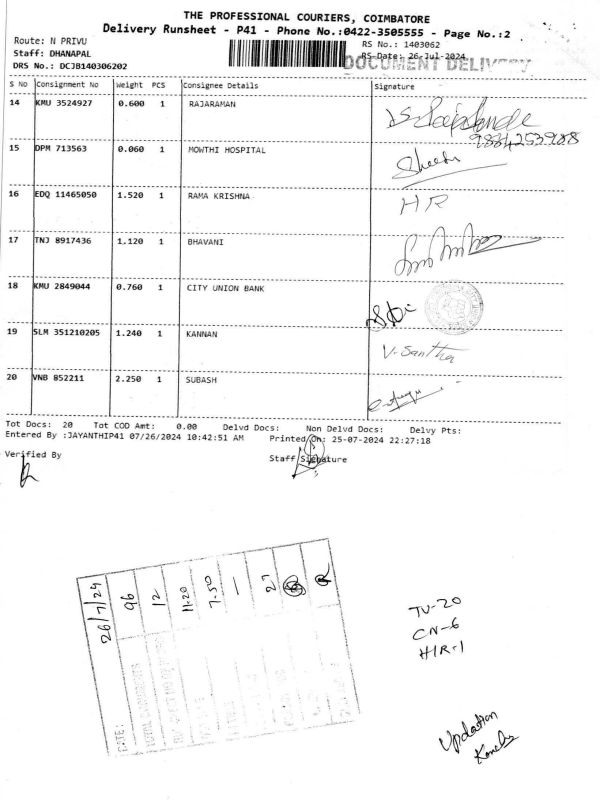 THE PROFESSIONAL COURIERS, COIMBATORE
Delivery Runsheet - P41 - Phone No.:0422-3505555 - Page No.:2
Route: N PRIVU
RS No.: 1403062
Staff: DHANAPAL
RS Date: 26-Jul-2024
DOCUMENT DELIVERY
DRS No.: DCJB140306202
S No Consignment No Weight PCS Consignee Details Signature
14 KMU 3524927 0.600 1 RAJARAMAN
15 DPM 713563 0.060 1 MOWTHI HOSPITAL
16 EDQ 11465050 1.520 1 RAMA KRISHNA HR
17 TNJ 8917436 1.120 1 BHAVANI
18 KMU 2849044 0.760 1 CITY UNION BANK
19 SLM 351210205 1.240 1 KANNAN V. Santha
20 VNB 852211 2.250 1 SUBASH
Tot Docs: 20 Tot COD Amt: 0.00 Delvd Docs: Non Delvd Docs: Delvy Pts:
Entered By :JAYANTHIP41 07/26/2024 10:42:51 AM Printed On: 25-07-2024 22:27:18
Verified By Staff Signature
DATE: 26/7/24
96
12
11.20
7.50
—
27
TU-20
CN-6
HR-1
Updation